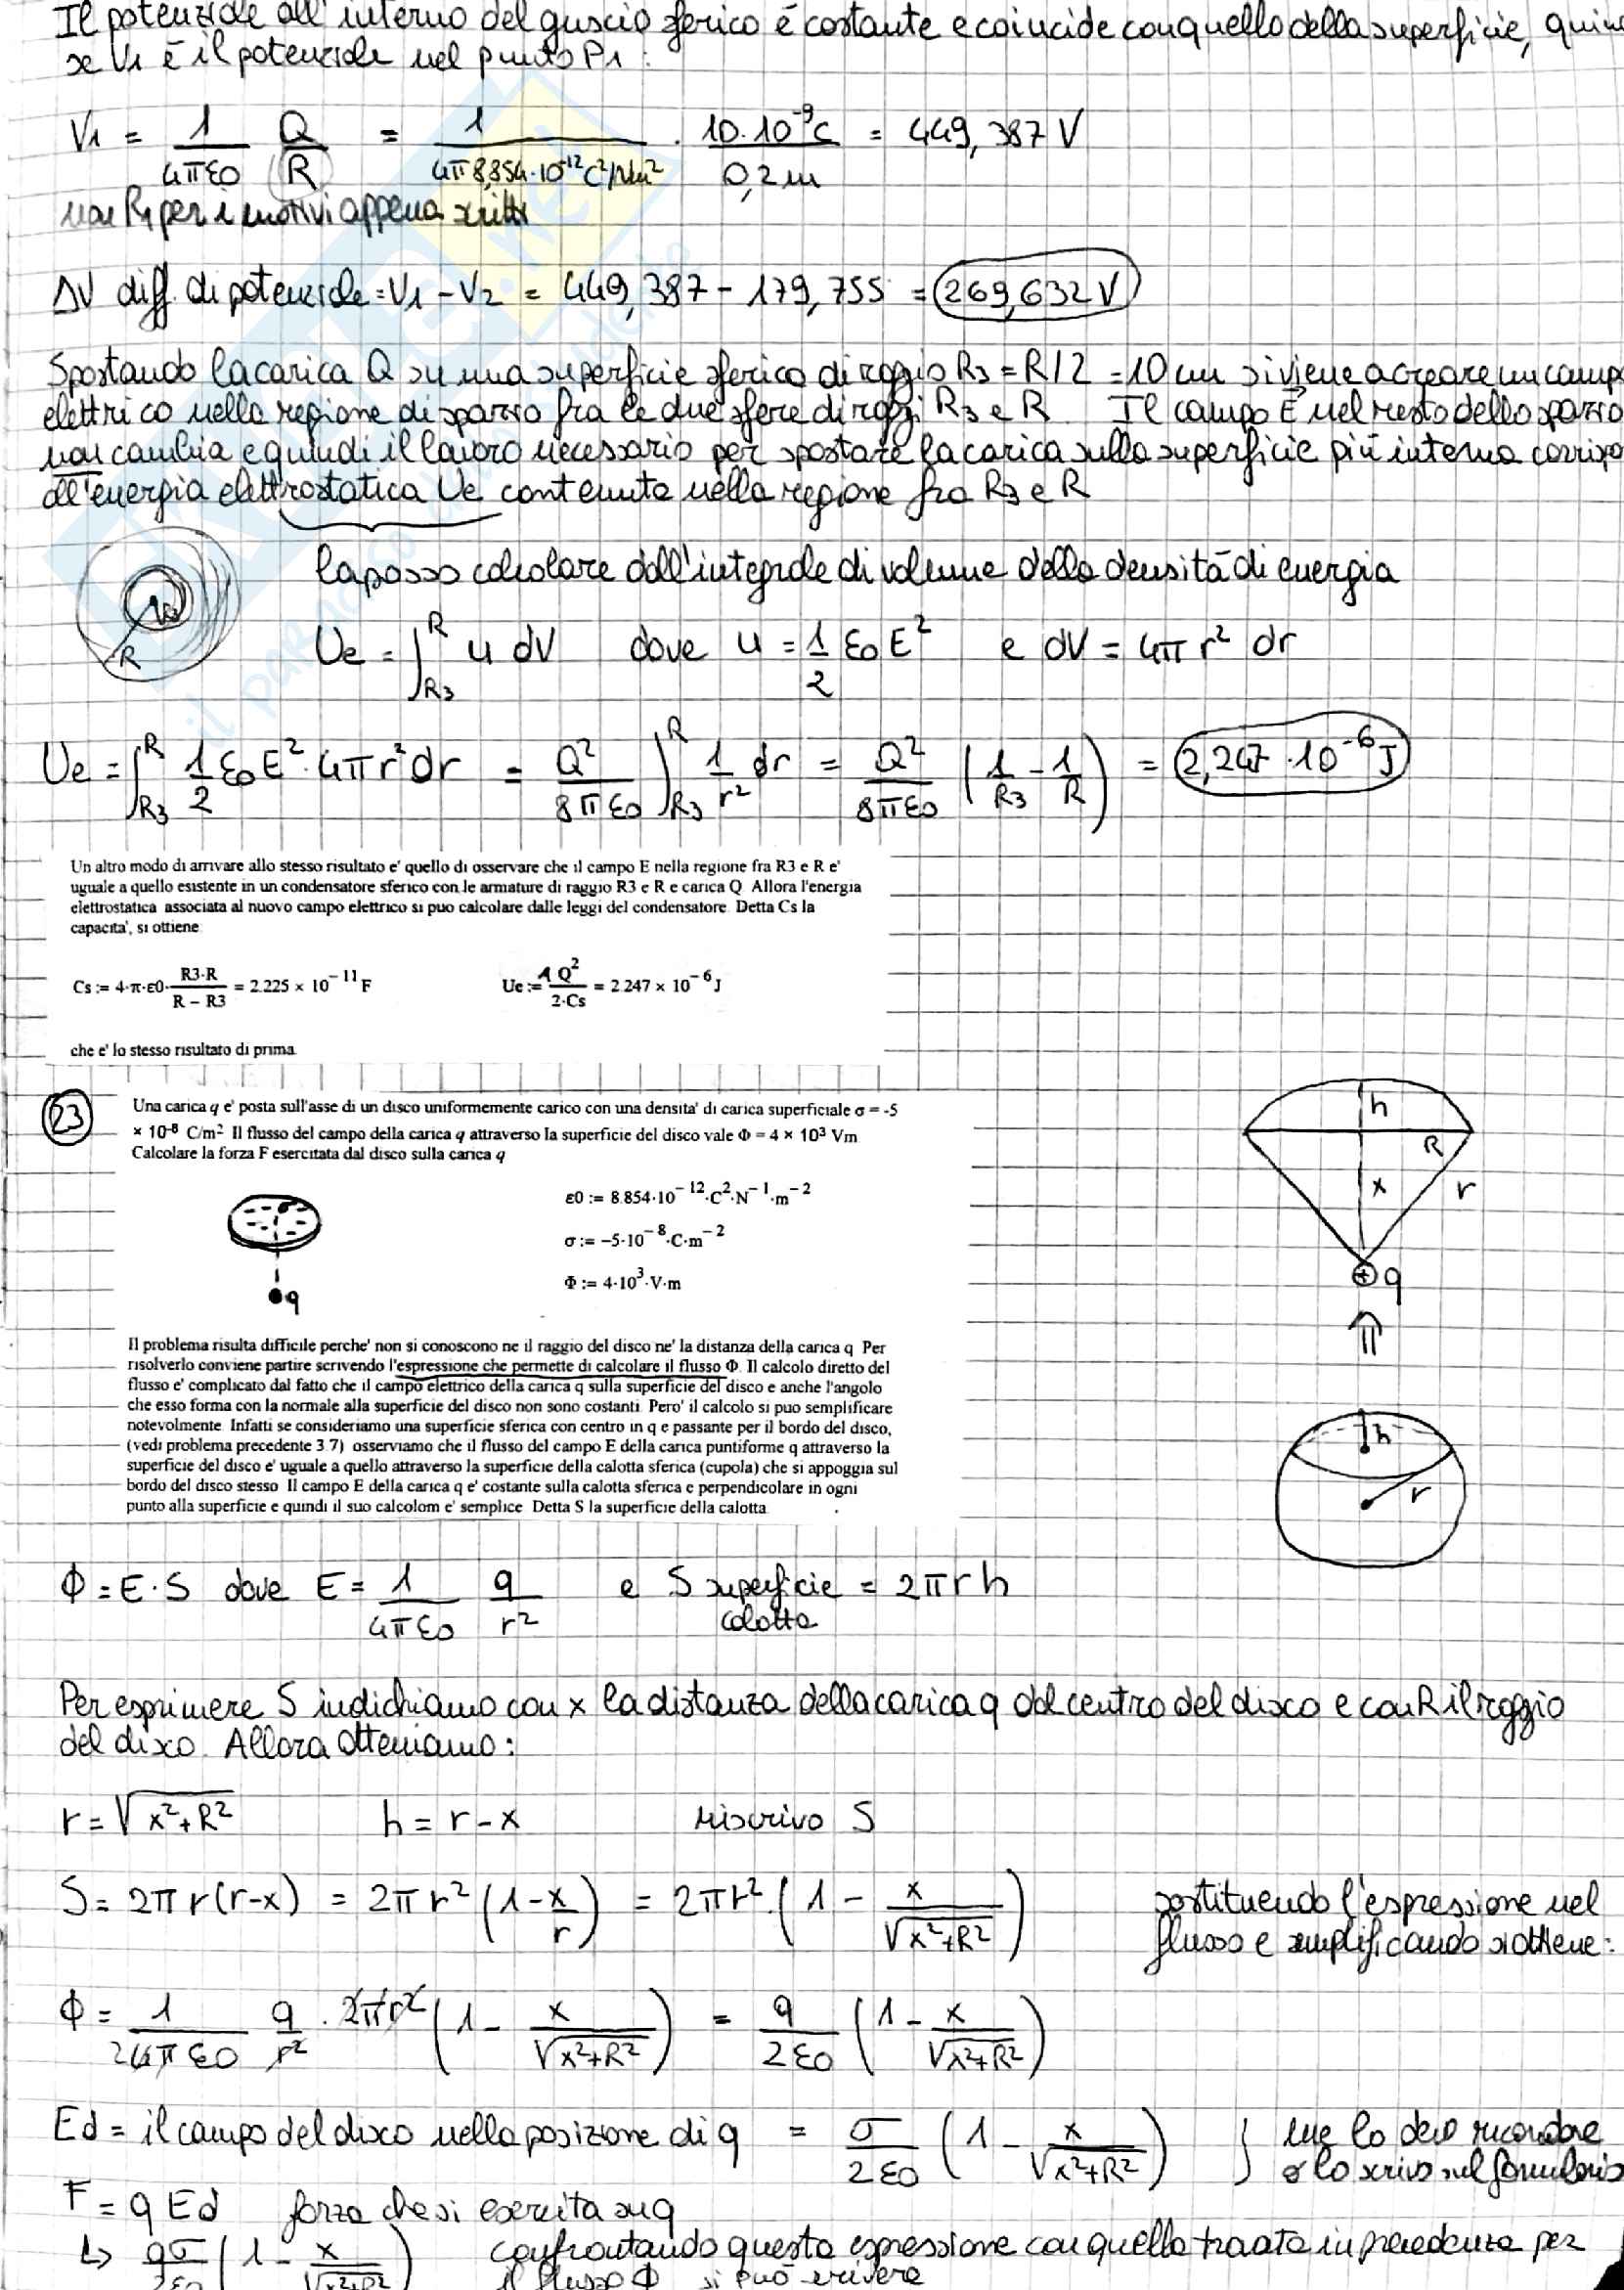 Il potenziale all'interno del guscio sferico è costante e coincide con quello della superficie, quin
se V1 è il potenziale nel punto P1 :
V1 = 1/(4πε0) Q/R = 1/(4π 8,854·10^-12 C²/Nm²) · 10·10^-9 C/0,2m = 449,387 V
non R1 per i motivi appena scritti
ΔV diff. di potenziale = V1 - V2 = 449,387 - 179,755 = 269,632 V
Spostando la carica Q su una superficie sferica di raggio R3 = R/2 = 10 cm si viene a creare un campo
elettrico nella regione di spazio fra le due sfere di raggi R3 e R Il campo E nel resto dello spazio
non cambia e quindi il lavoro necessario per spostare la carica sulla superficie più interna corrispo
all'energia elettrostatica Ue contenuta nella regione fra R3 e R
la posso calcolare dall'integrale di volume della densità di energia
R3
R
Ue = ∫_R3^R u dV dove u = 1/2 ε0 E² e dV = 4π r² dr
Ue = ∫_R3^R 1/2 ε0 E² · 4π r² dr = Q²/(8πε0) ∫_R3^R 1/r² dr = Q²/(8πε0) (1/R3 - 1/R) = 2,247·10^-6 J
Un altro modo di arrivare allo stesso risultato e' quello di osservare che il campo E nella regione fra R3 e R e'
uguale a quello esistente in un condensatore sferico con le armature di raggio R3 e R e carica Q Allora l'energia
elettrostatica associata al nuovo campo elettrico si puo calcolare dalle leggi del condensatore Detta Cs la
capacita', si ottiene
Cs := 4·π·ε0· R3·R/(R − R3) = 2.225 × 10^−11 F Ue := 1 Q²/(2·Cs) = 2 247 × 10^−6 J
che e' lo stesso risultato di prima
23
Una carica q e' posta sull'asse di un disco uniformemente carico con una densita' di carica superficiale σ = -5
× 10^-8 C/m² Il flusso del campo della carica q attraverso la superficie del disco vale Φ = 4 × 10³ Vm
Calcolare la forza F esercitata dal disco sulla carica q
ε0 := 8 854·10^−12·C²·N^−1·m^−2
σ := −5·10^−8·C·m^−2
Φ := 4·10³·V·m
q
h
R
x
r
q
h
r
Il problema risulta difficile perche' non si conoscono ne il raggio del disco ne' la distanza della carica q Per
risolverlo conviene partire scrivendo l'espressione che permette di calcolare il flusso Φ. Il calcolo diretto del
flusso e' complicato dal fatto che il campo elettrico della carica q sulla superficie del disco e anche l'angolo
che esso forma con la normale alla superficie del disco non sono costanti Pero' il calcolo si puo semplificare
notevolmente Infatti se consideriamo una superficie sferica con centro in q e passante per il bordo del disco,
(vedi problema precedente 3 7) osserviamo che il flusso del campo E della carica puntiforme q attraverso la
superficie del disco e' uguale a quello attraverso la superficie della calotta sferica (cupola) che si appoggia sul
bordo del disco stesso Il campo E della carica q e' costante sulla calotta sferica e perpendicolare in ogni
punto alla superficie e quindi il suo calcolom e' semplice Detta S la superficie della calotta
Φ = E·S dove E = 1/(4πε0) q/r² e S superficie calotta = 2πrh
Per esprimere S indichiamo con x la distanza della carica q dal centro del disco e con R il raggio
del disco. Allora otteniamo:
r = √(x²+R²) h = r - x riscrivo S
S = 2πr(r-x) = 2πr² (1 - x/r) = 2πr² · (1 - x/√(x²+R²)) sostituendo l'espressione nel
flusso e semplificando si ottiene:
Φ = 1/(4πε0) q/r² · 2πr² (1 - x/√(x²+R²)) = q/(2ε0) (1 - x/√(x²+R²))
Ed = il campo del disco nella posizione di q = σ/(2ε0) (1 - x/√(x²+R²)) } me lo devo ricordare
o lo scrivo sul formulario
F = q Ed forza che si esercita su q
↳ qσ/2ε0 (1 - x/√(x²+R²)) confrontando questa espressione con quella trovata in precedenza per
il flusso Φ si può scrivere